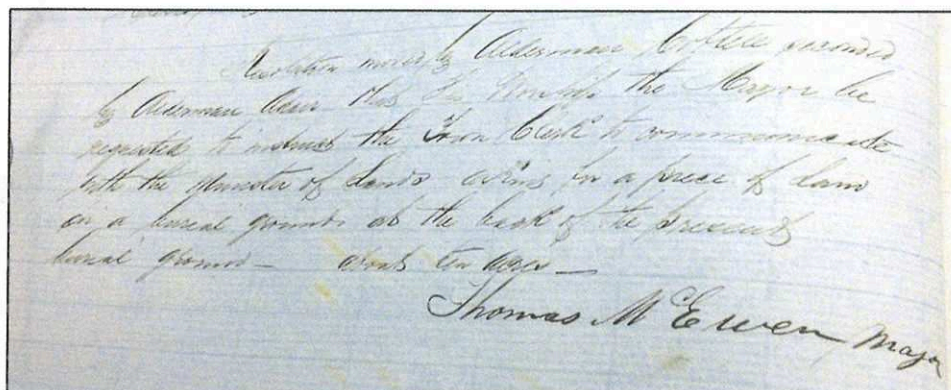 Resolution moved by Alderman seconded
by Alderman Adair that his Worship the Mayor be
requested to instruct the Town Clerk to communicate
with the Minister of Lands asking for a piece of land
as a burial grounds at the back of the present
burial grounds — about ten acres —
Thomas McEwen Mayor